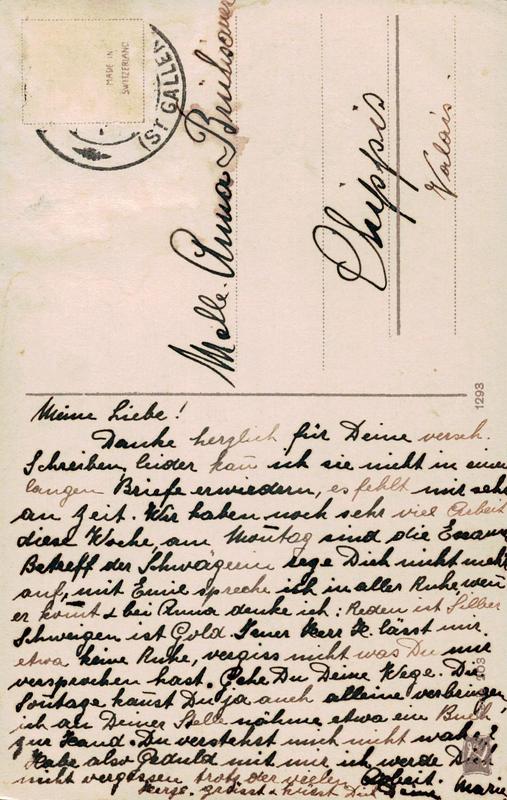 MADE IN
SWITZERLAND
(ST GALLEN
Melle. Anna
Chippis
Valais
1293
Meine Liebe!
Danke herzlich für Deine versch.
Schreiben, leider kan̄ ich sie nicht in einem
langen Briefe erwiedern, es fehlt mir sehr
an Zeit. Wir haben noch sehr viel Arbeit
diese Woche, am Montag sind die Examen
Betreff der Schwägerin rege Dich nicht mehr
auf, mit Emil spreche ich in aller Ruhe, wen̄
er kom̄t & bei Anna denke ich: Reden ist Silber
Schweigen ist Gold. Jener Herr K. lässt mir
etwa keine Ruhe, vergiss nicht was Du mir
versprochen hast. Gehe Du Deine Wege. Die
Son̄tage kan̄st Du ja auch alleine verbringen
ich an Deiner Stelle nähme etwa ein Buch
zur Hand. Du verstehst mich nicht wahr?
Habe also Geduld mit mir ich werde Dich
nicht vergessen trotz der vielen Arbeit.
Herzl. grüsst & küsst Dich Deine Marie